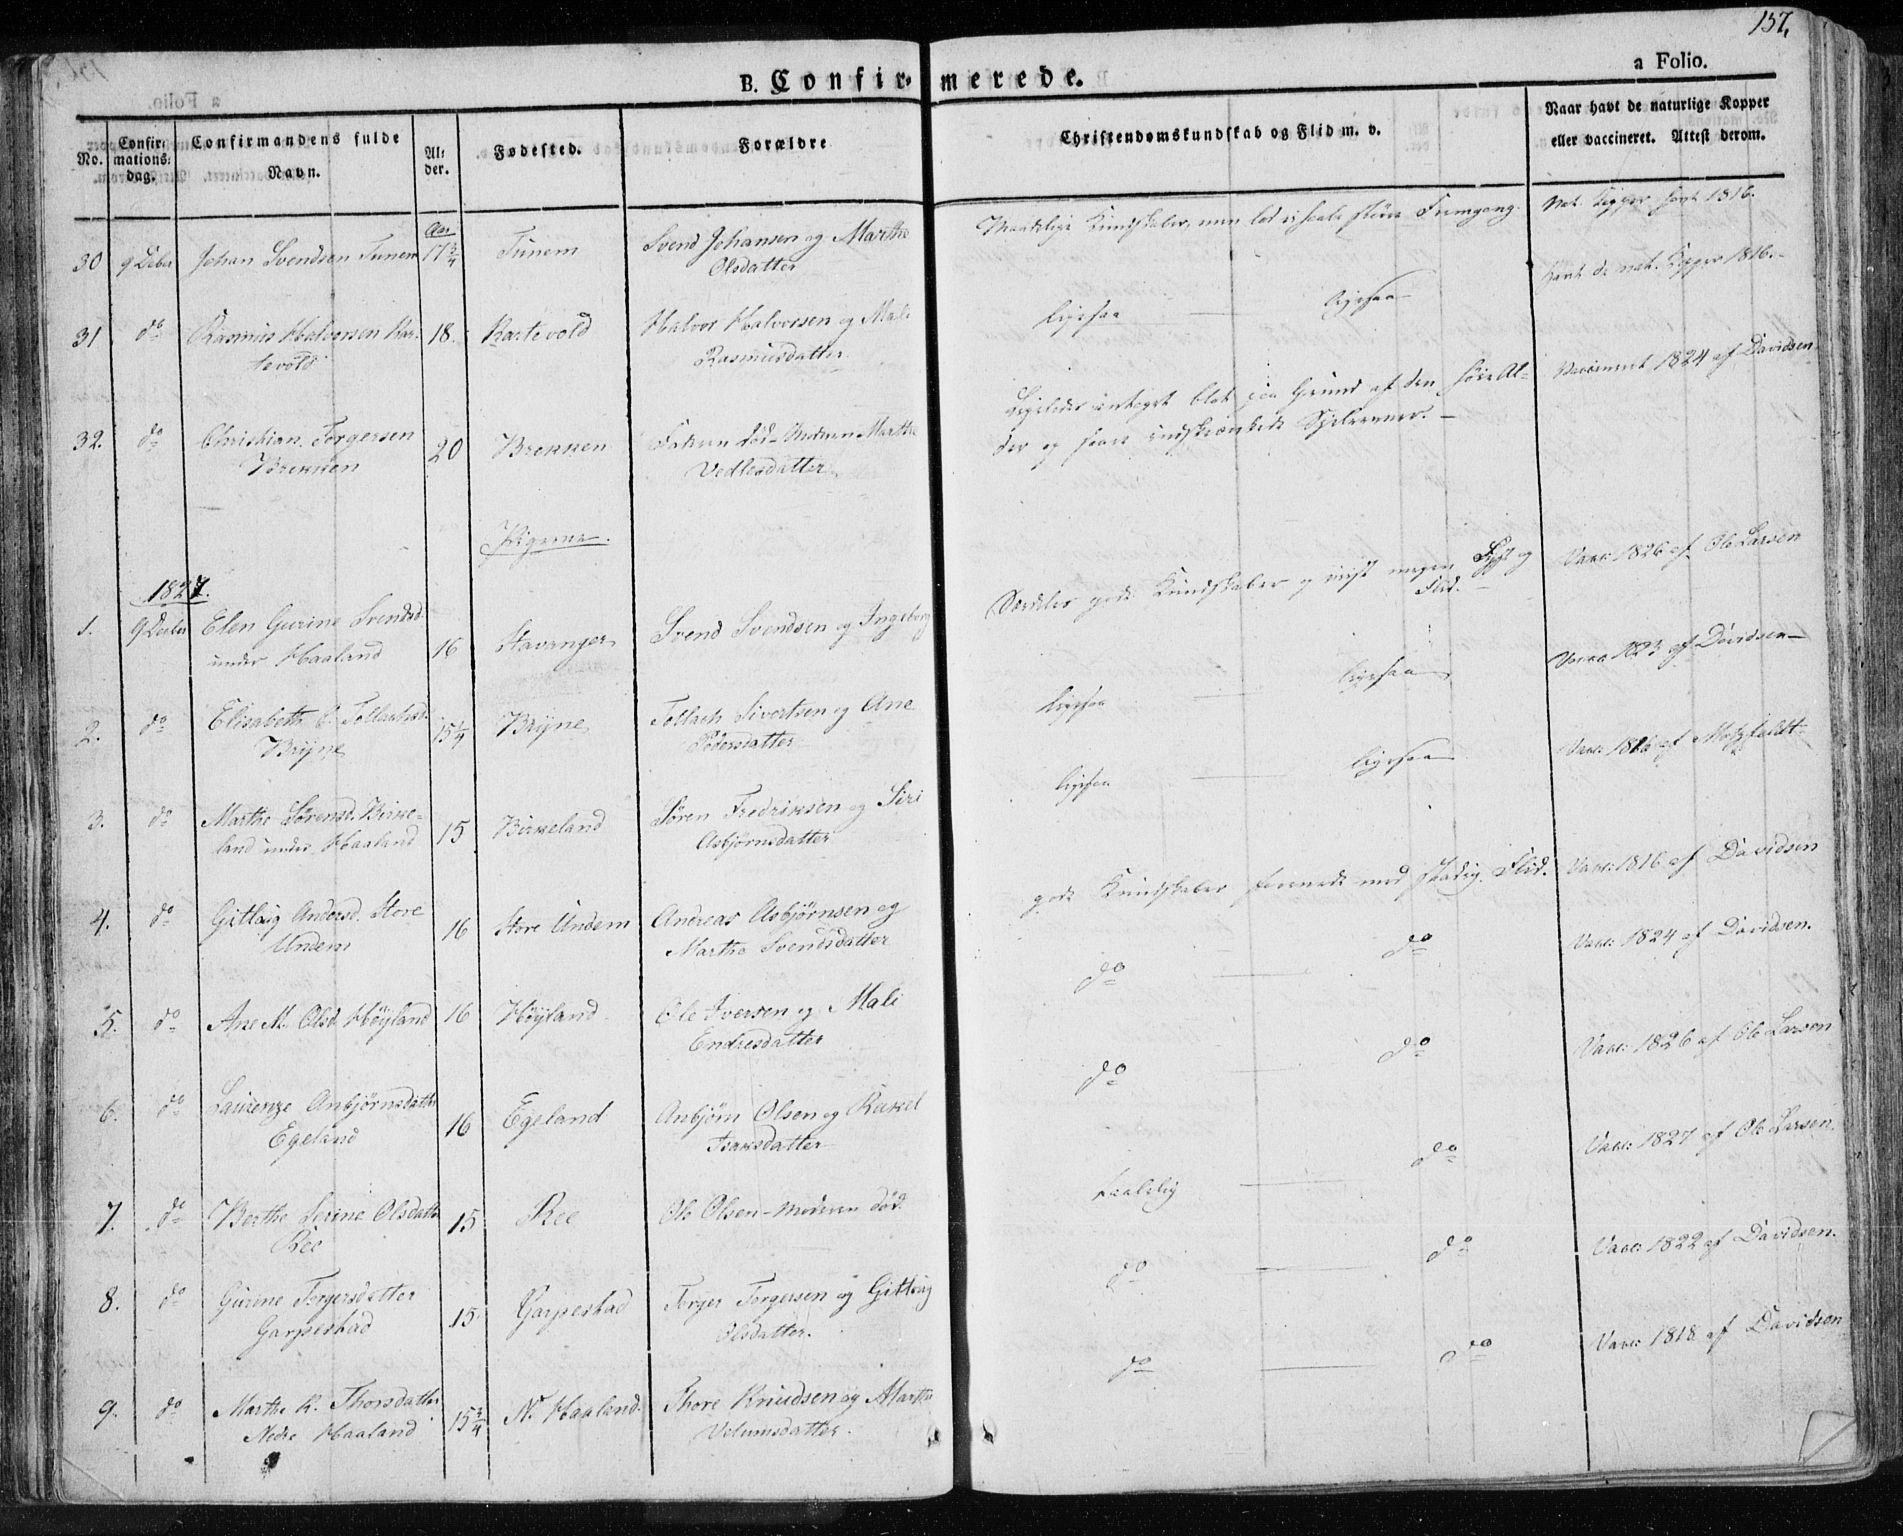 157.
B. Confirmerede.
a Folio.
No.
Confirmations: dag.
Confirmandens fulde Navn.
Alder.
Fødested.
Forældre
Christendomskundskab og Flid m. v.
Naar havt de naturlige Kopper eller vaccineret. Attest derom.
30 9 Dcbr Johan Svendsen Tunem Aar 17 3/4 Tunem Svend Johansen og Marthe
Olsdatter
Maadelige Kundskaber, men lod ei haabe større Fremgang.
Nat. Kopper havt 1816.
31 do Rasmus Halvorsen Kar-
tevold
18. Kartevold Halvor Halvorsen og Mali
Rasmusdatter
ligesaa ligesaa
havt de nat. Kopper 1816.
32. do Christian Torgersen
Brekken
20 Brekken Faderen død - Moderen Marthe
Vedlesdatter
Ligeledes antaget blot paa Grund af den høie Al-
der og svare indskrænkede Sjelevner.
Vaccineret 1824 af Davidsen
Pigerne.
1827.
1. 9 Decbr Elen Gurine Svendsd.
under Haaland
16 Stavanger Svend Svendsen og Ingeborg
Særdeles gode Kundskaber og viist megen Lyst og
Flid.
Vacc: 1826 af Ole Larsen
2. do Elisabeth C. Tollachsd.
Bryne
15 1/4 Bryne Tollach Sivertsen og Ane
Pedersdatter
ligesaa ligesaa
Vacc 1823 af Davidsen
3. do Marthe Sørensd. Birke-
land under Haaland
15 Birkeland Søren Fredriksen og Siri
Asbjørnsdatter
ligesaa ligesaa
Vacc: 1816 af Motzfeldt
4. do Gitlaug Andersd. Store
Undem
16 Store Undem Andreas Asbjørnsen og
Marthe Svendsdatter
gode Kundskaber forenede med stadig Flid.
Vacc: 1816 af Davidsen
5. do Ane M. Olsd. Høyland 16 Høyland Ole Iversen og Mali
Endresdatter
do do
Vacc: 1824 af Davidsen.
6. do Laurenze Anbjørnsdatter
Egeland
16 Egeland Anbjørn Olsen og Rakel
Isaksdatter
do do
Vacc: 1826 af Ole Larsen
7. do Berthe Serine Olsdatter
Ree
15 Ree Ole Olsen - Moderen død.
taalelig do
Vacc: 1827 af Ole Larsen.
8. do Gurine Torgersdatter
Garpestad
15 Garpestad Torger Torgersen og Gitlaug
Olsdatter.
do do
Vacc: 1822 af Davidsen.
9. do Marthe K. Thorsdatter
Nedre Haaland
15 3/4 N. Haaland. Thore Knudsen og Marthe
Velumsdatter.
do do
Vacc: 1818 af Davidsen